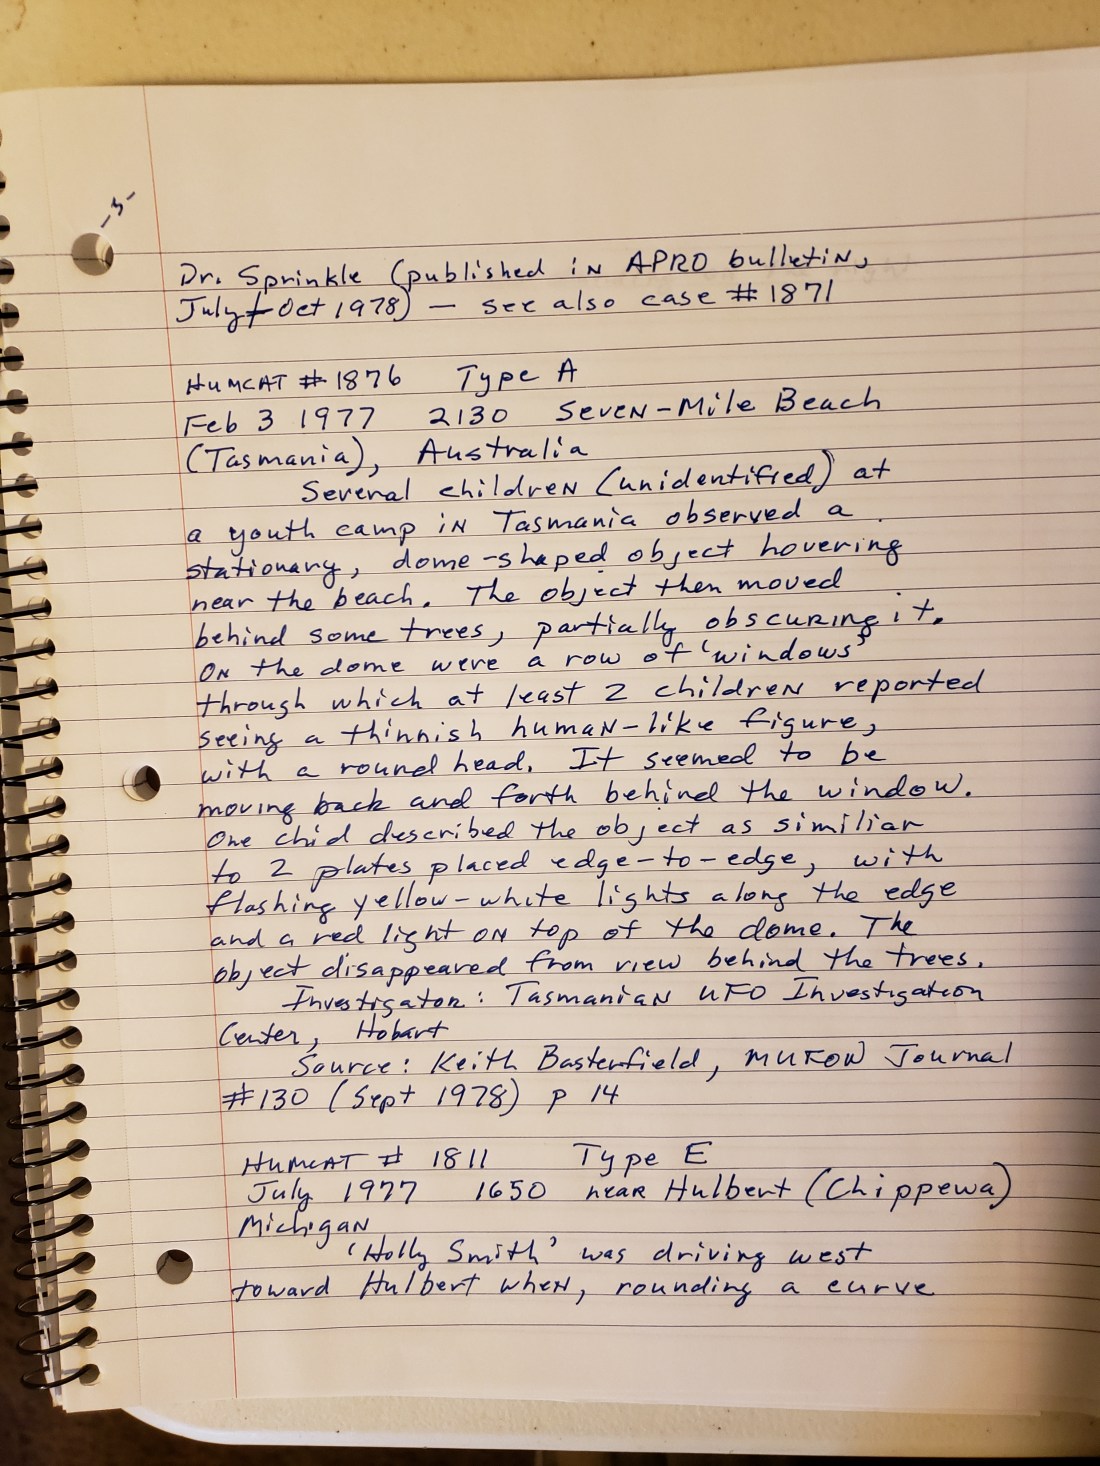 -3-
Dr. Sprinkle (published in APRO bulletin,
July-Oct 1978) - see also case #1871
HUMCAT #1876 Type A
Feb 3 1977 2130 Seven-Mile Beach
(Tasmania), Australia
Several children (unidentified) at
a youth camp in Tasmania observed a
stationary, dome-shaped object hovering
near the beach. The object then moved
behind some trees, partially obscuring it.
On the dome were a row of 'windows'
through which at least 2 children reported
seeing a thinnish human-like figure,
with a round head. It seemed to be
moving back and forth behind the window.
One chid described the object as similiar
to 2 plates placed edge-to-edge, with
flashing yellow-white lights along the edge
and a red light on top of the dome. The
object disappeared from view behind the trees.
Investigator: Tasmanian UFO Investigation
Center, Hobart
Source: Keith Basterfield, MUFON Journal
#130 (Sept 1978) p 14
HUMCAT # 1811 Type E
July 1977 1650 near Hulbert (Chippewa)
Michigan
'Holly Smith' was driving west
toward Hulbert when, rounding a curve